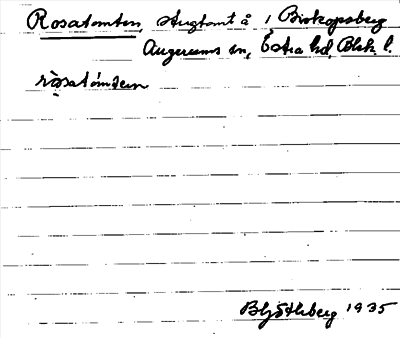 Rosatomten, stugtomt å 1 Biskopsberg
Augerums sn, Östra hd, Blek. l.
ròsatómten
BHjöthberg 1935